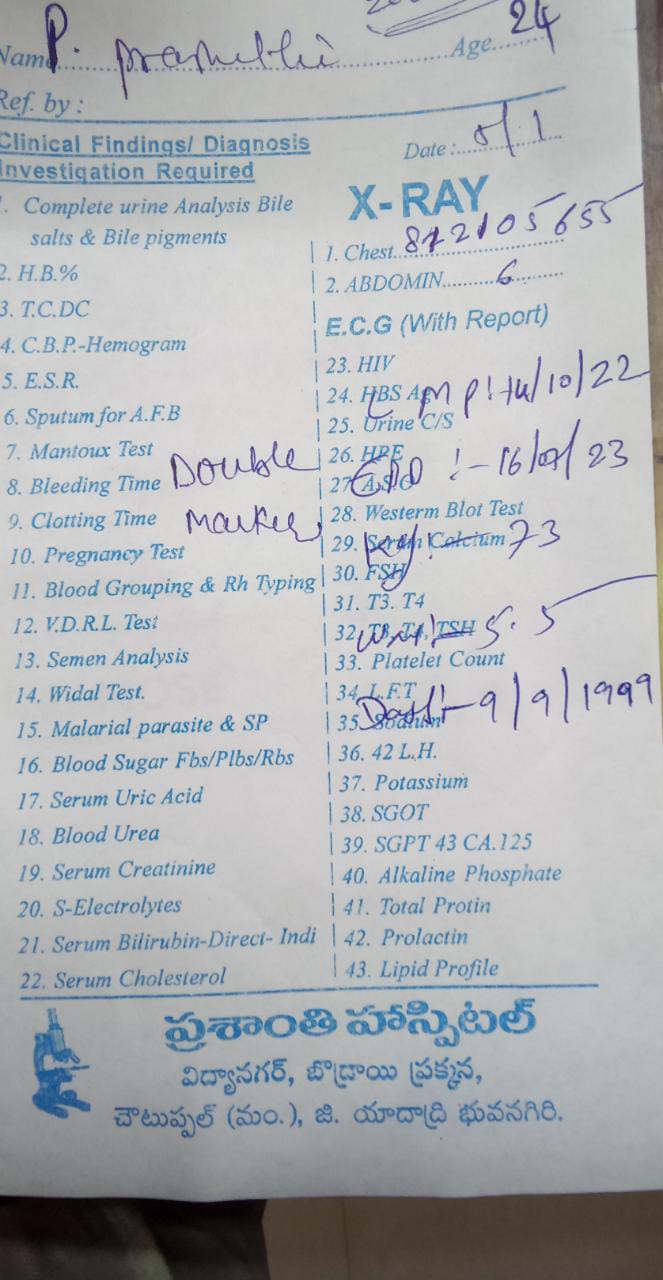 Name P. Age 24
Ref. by :
Clinical Findings/ Diagnosis
Investigation Required
1. Complete urine Analysis Bile
salts & Bile pigments
2. H.B.%
3. T.C.DC
4. C.B.P.-Hemogram
5. E.S.R.
6. Sputum for A.F.B
7. Mantoux Test
8. Bleeding Time
9. Clotting Time
Double
Marker
10. Pregnancy Test
11. Blood Grouping & Rh Typing
12. V.D.R.L. Test
13. Semen Analysis
14. Widal Test.
15. Malarial parasite & SP
16. Blood Sugar Fbs/Plbs/Rbs
17. Serum Uric Acid
18. Blood Urea
19. Serum Creatinine
20. S-Electrolytes
21. Serum Bilirubin-Direct- Indi
22. Serum Cholesterol
Date :
X- RAY
1. Chest
2. ABDOMIN 6
E.C.G (With Report)
23. HIV
24. HBS Ag
LMP :- 14/10/22
25. Urine C/S
26. HPE
EDD :- 16/07/23
27. A.S.O
28. Westerm Blot Test
29. Serum Calcium
73
30. FSH
31. T3. T4
32. T3, T4, TSH
5.5
33. Platelet Count
34. L.F.T
35. Sodium
9/9/1999
36. 42 L.H.
37. Potassium
38. SGOT
39. SGPT 43 CA.125
40. Alkaline Phosphate
41. Total Protin
42. Prolactin
43. Lipid Profile
ప్రశాంతి హాస్పిటల్
విద్యానగర్, బొడ్రాయి ప్రక్కన,
చౌటుప్పల్ (మం.), జి. యాదాద్రి భువనగిరి.